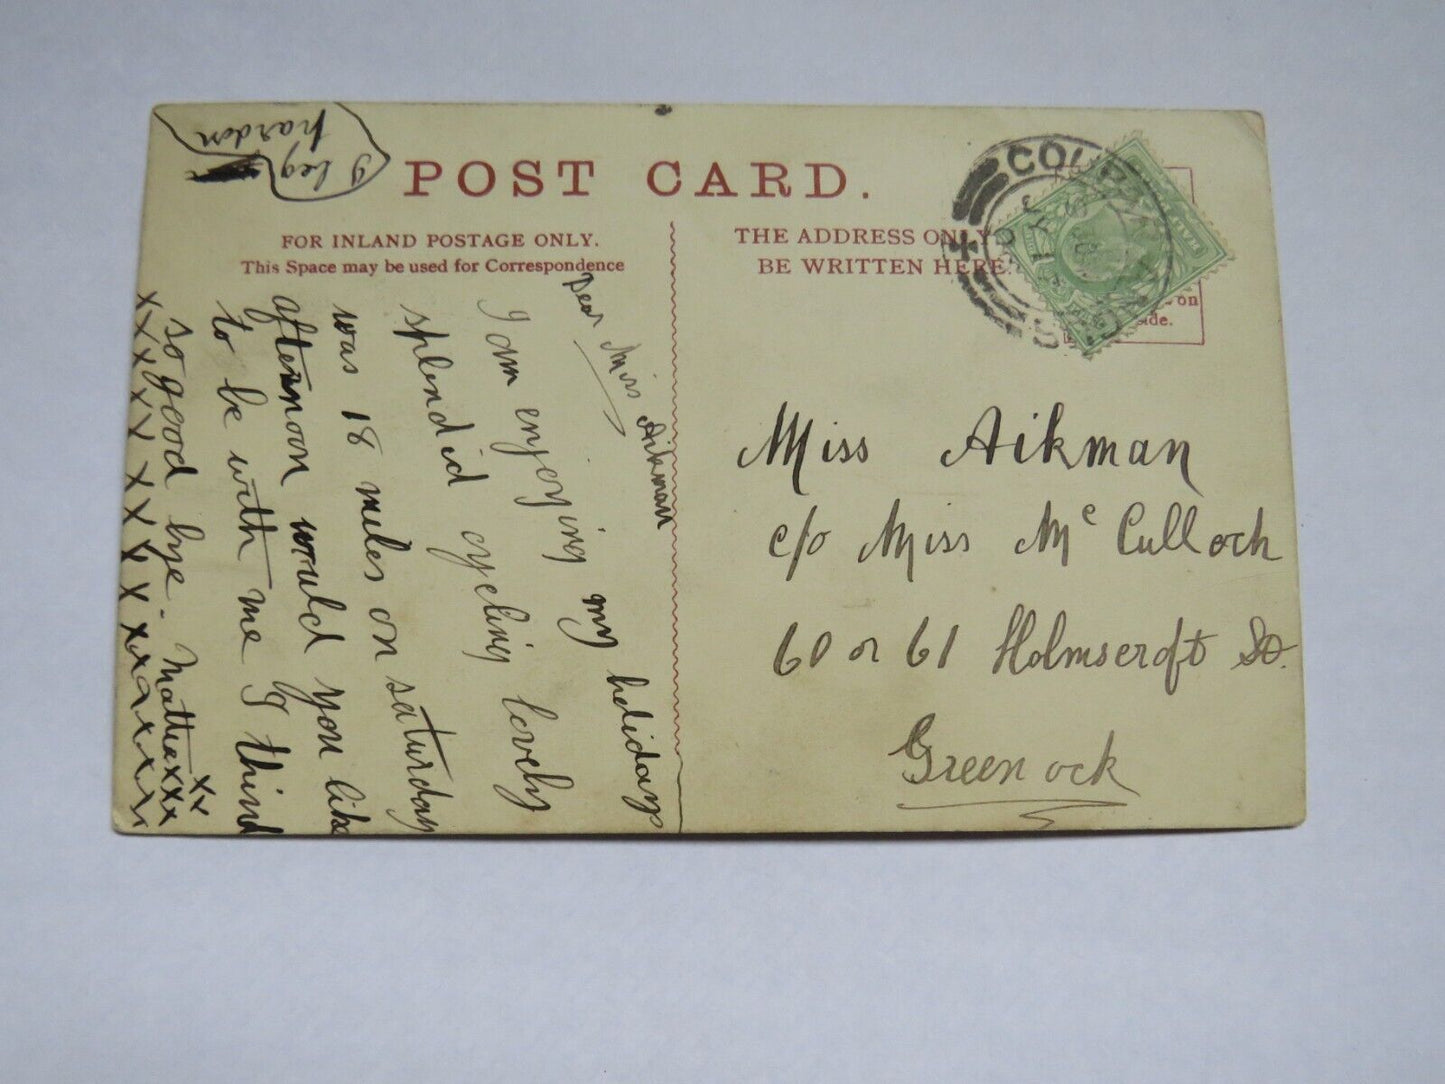 POST CARD.
FOR INLAND POSTAGE ONLY.
This Space may be used for Correspondence
THE ADDRESS ONLY
BE WRITTEN HERE
on
side.
I beg
pardon
Dear Miss Aikman
I am enjoying my holidays
splendid cycling lovely
was 18 miles on saturday
afternoon would you like
to be with me I think
so good bye. Mattie xxx
xx
x x x x x x x x x x x x x x x x
Miss Aikman
c/o Miss Mc Culloch
60 or 61 Holmscroft St.
Greenock